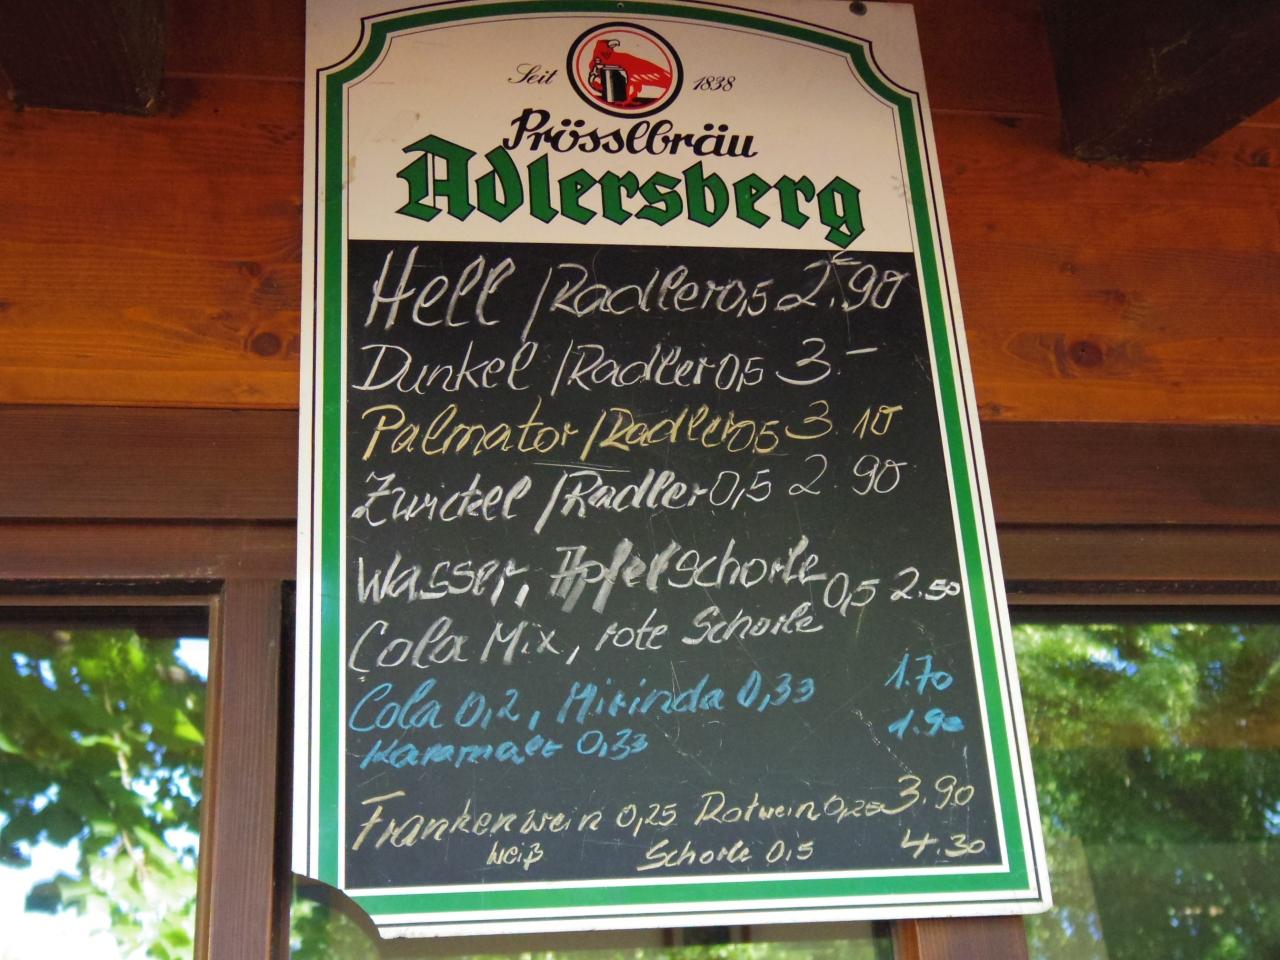 Seit 1838
Prösslbräu
Adlersberg
Hell / Radler 0,5 2.90 €
Dunkel / Radler 0,5 3 –
Palmator / Radler 0,5 3.10
Zwickel / Radler 0,5 2.90
Wasser, Apfelschorle
0,5 2.50
Cola Mix, rote Schorle
Cola 0,2, Mirinda 0,33 1.70
Karamalt 0,33 1.90
Frankenwein 0,25 Rotwein 0,25 3.90
weiß Schorle 0,5 4.30